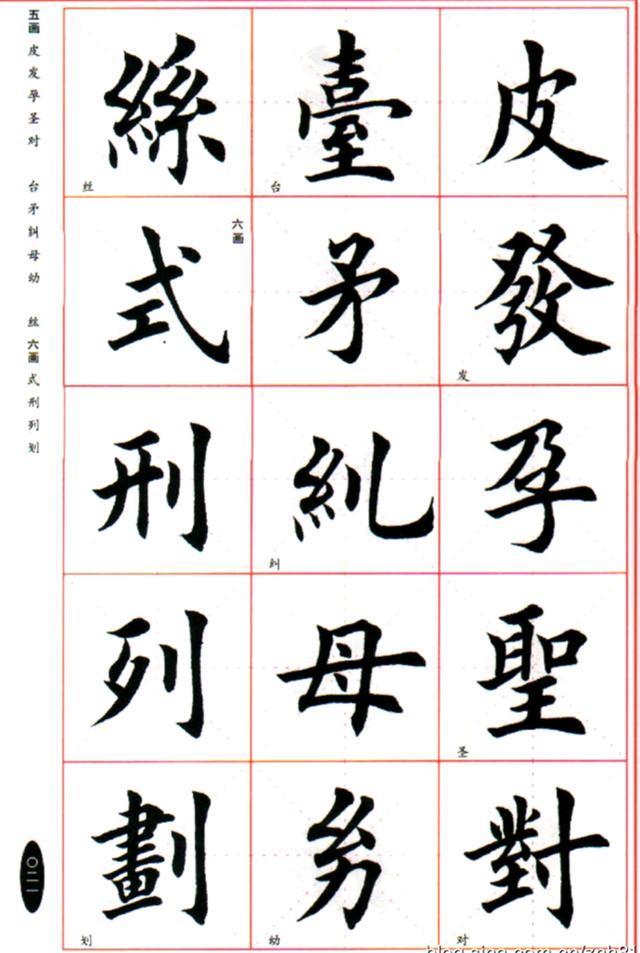 皮
發
发
孕
聖
圣
對
对
臺
台
矛
糺
纠
母
幼
幼
絲
丝
六画
式
刑
列
劃
划
五画 皮 发 孕 圣 对 台 矛 纠 母 幼 丝 六画 式 刑 列 划
〇二一